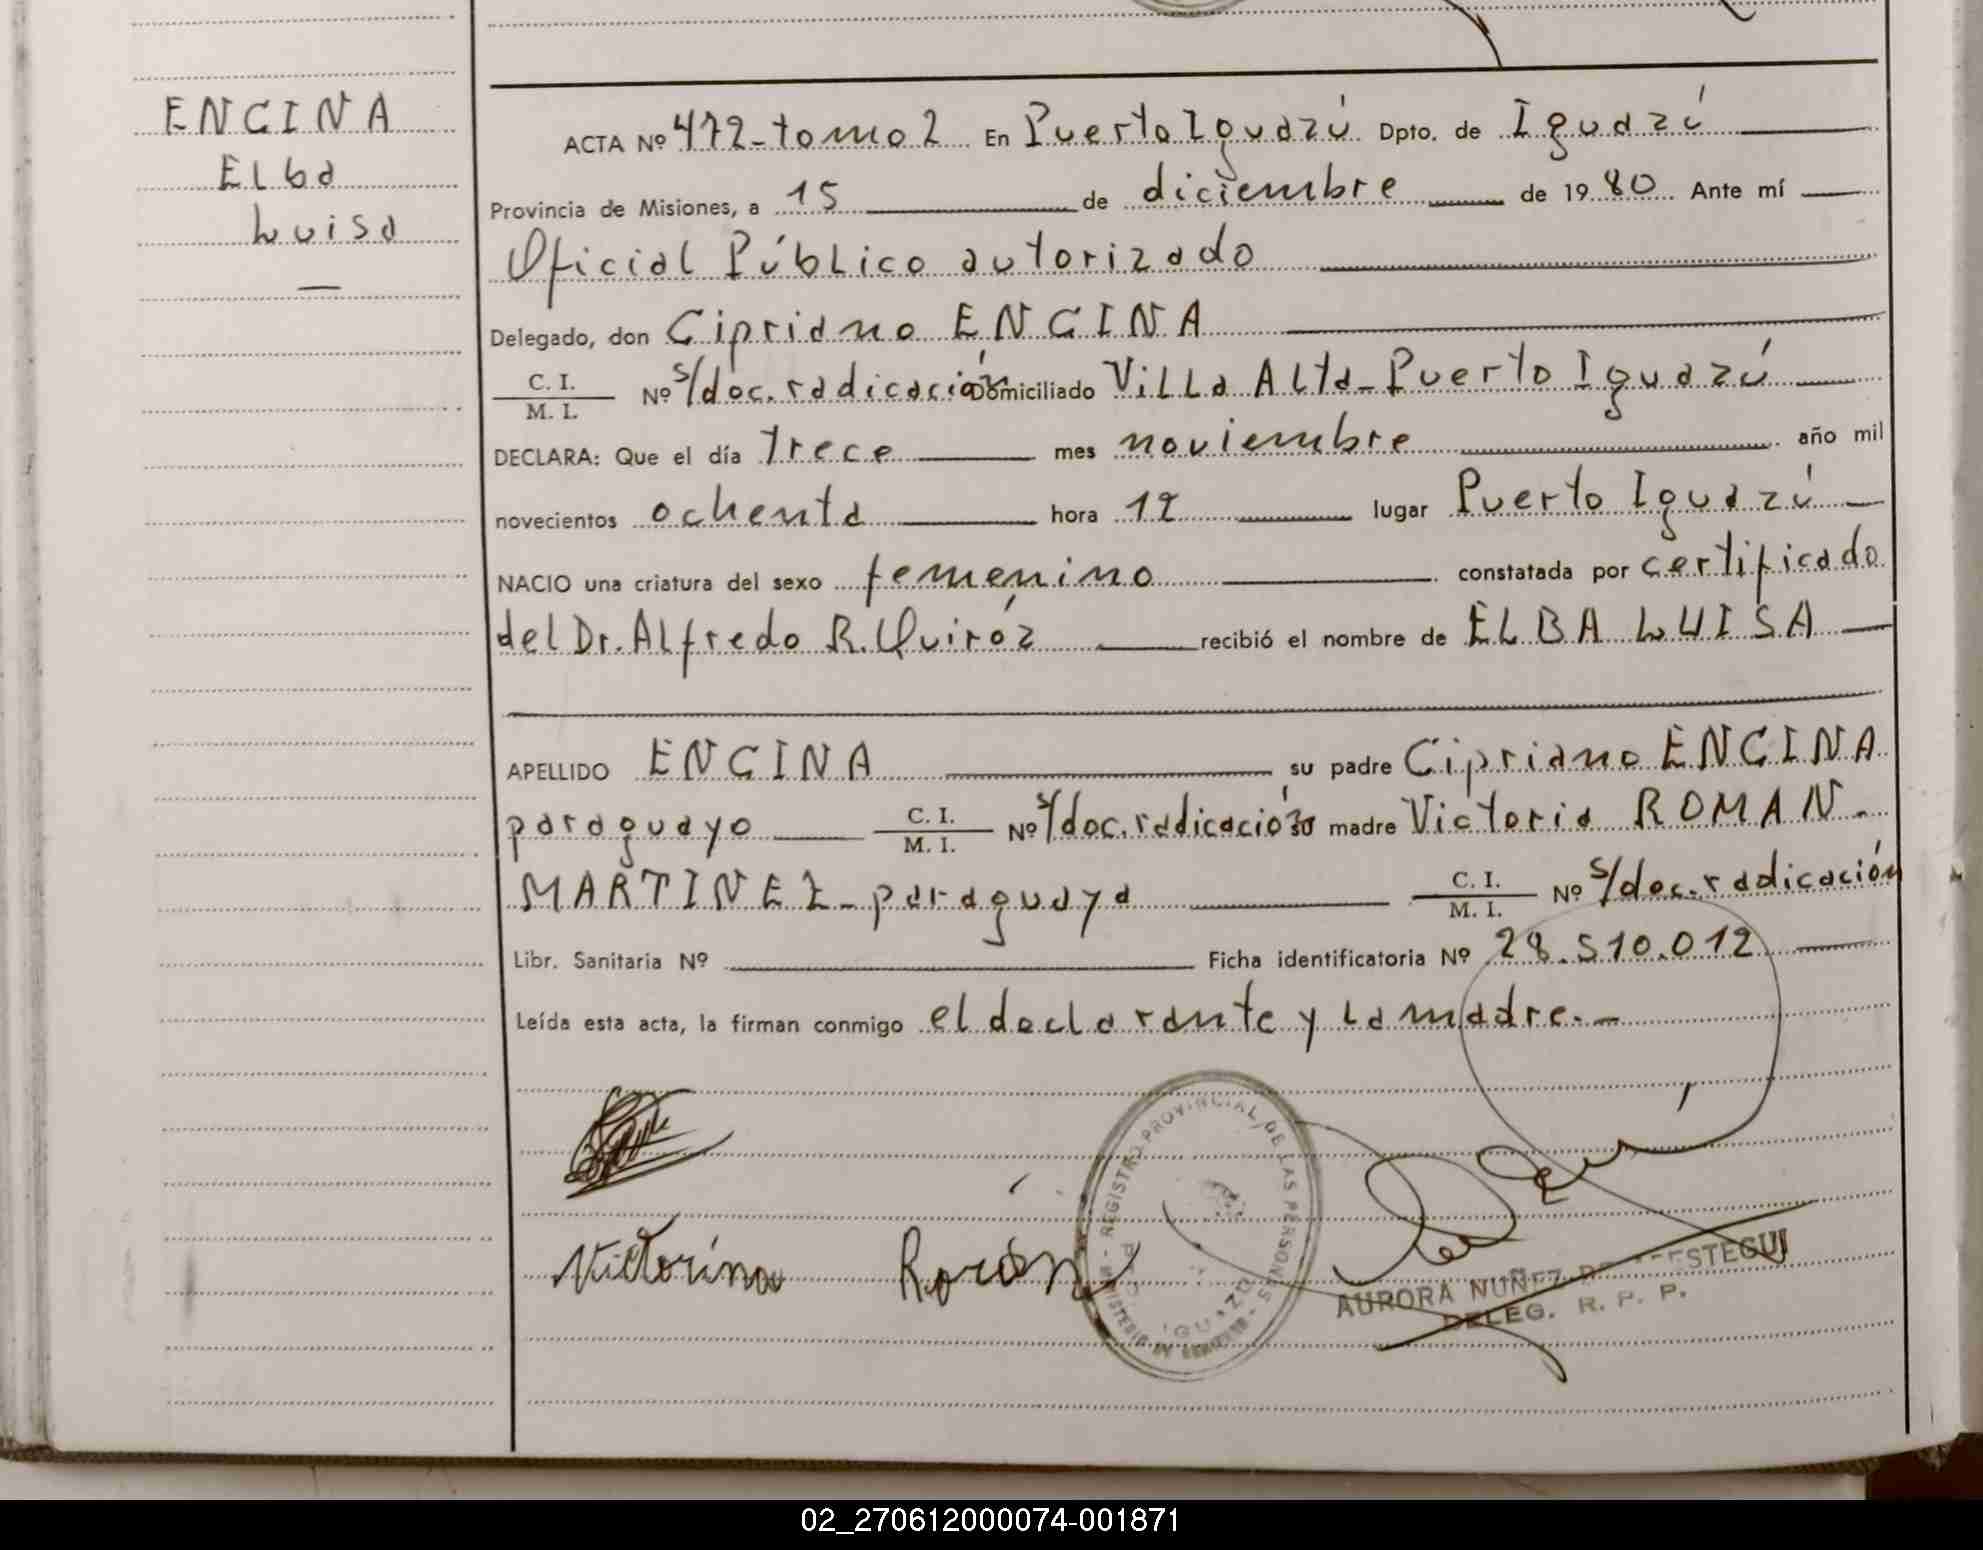 ENCINA
Elba
Luisa
ACTA Nº 472-tomo 2 En Puerto Iguazú Dpto. de Iguazú
Provincia de Misiones, a 15 de diciembre de 19 80 Ante mí
Oficial Público autorizado
Delegado, don Cipriano ENCINA
C. I.
M. I. Nº s/doc. radicación Domiciliado Villa Alta-Puerto Iguazú
DECLARA: Que el día trece mes noviembre año mil
novecientos ochenta hora 12 lugar Puerto Iguazú
NACIO una criatura del sexo femenino constatada por certificado
del Dr. Alfredo R. Quiróz recibió el nombre de ELBA LUISA
APELLIDO ENCINA su padre Cipriano ENCINA
paraguayo C. I.
M. I. Nº s/doc. radicación su madre Victoria ROMAN
MARTINEZ- paraguaya C. I.
M. I. Nº s/doc. radicación
Libr. Sanitaria Nº Ficha identificatoria Nº 28.510.012
Leída esta acta, la firman conmigo el declarante y la madre.-
REGISTRO PROVINCIAL DE LAS PERSONAS
Victorina
AURORA NUÑEZ
DELEG. R. P. P.
02_270612000074-001871